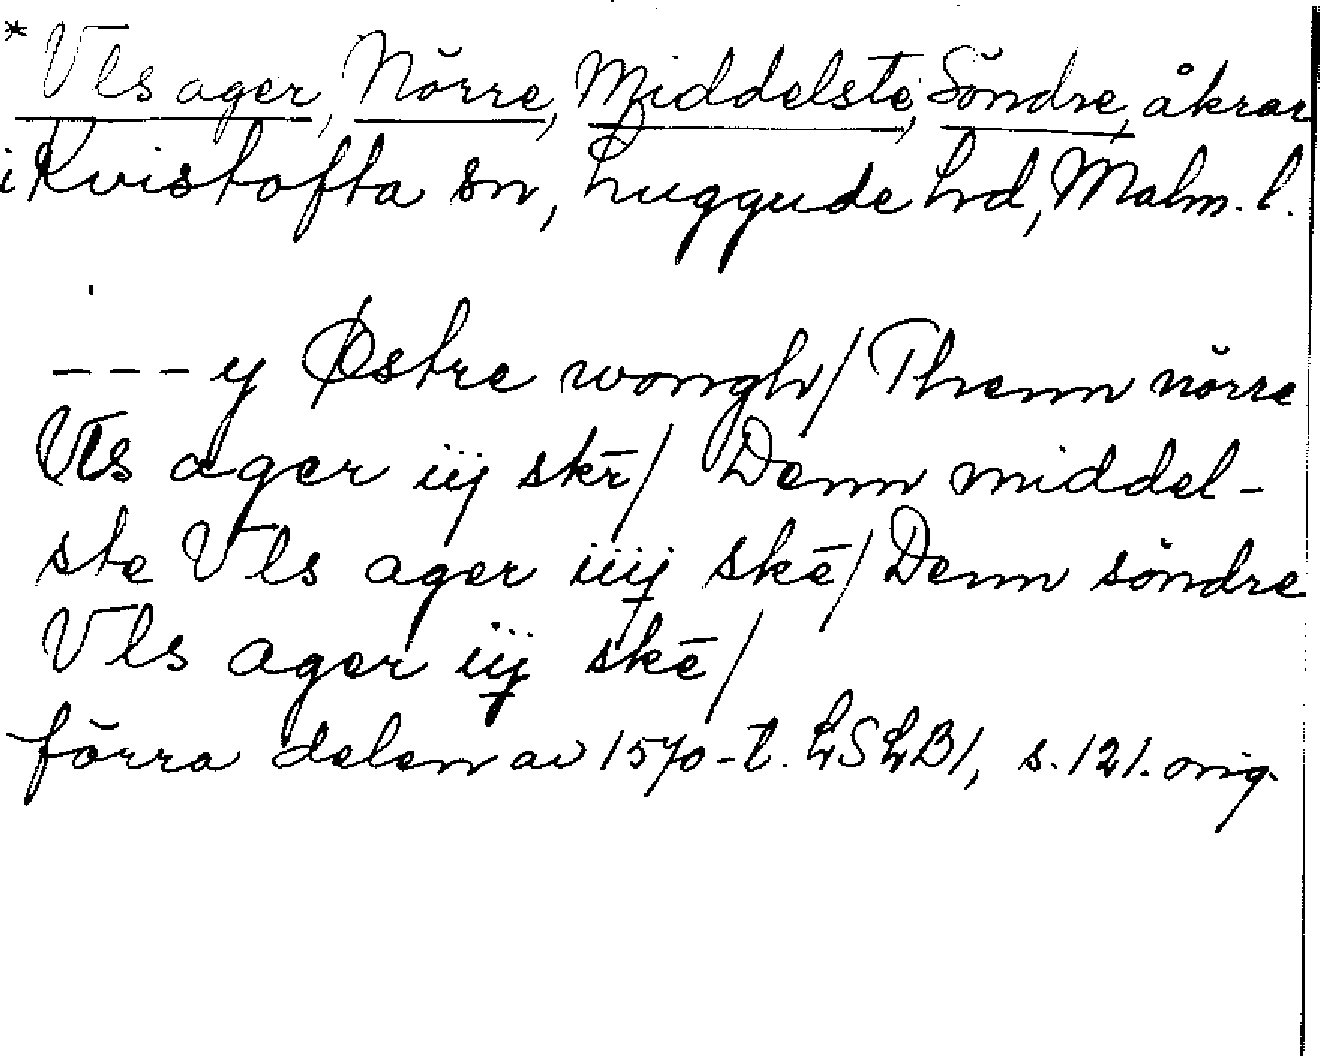 * Vls ager, Nörre, Middelste, Söndre, åkrar
i Kvistofta sn, Luggude hd, Malm. l.
--- y Østre wongh/ Thenn nörre
Vls ager iij skē/ Denn middel-
ste Vls ager iiij skē/ Denn söndre
Vls ager iij skē/
förra delen av 1570-t. LSLB1, s. 121. orig.